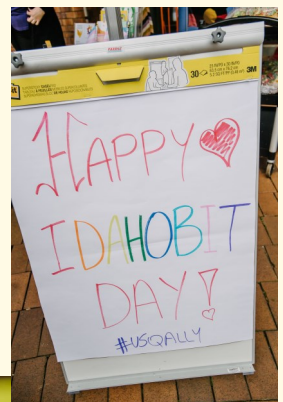 30
3M
HAPPY
IDAHOBIT
DAY!
#USQALLY